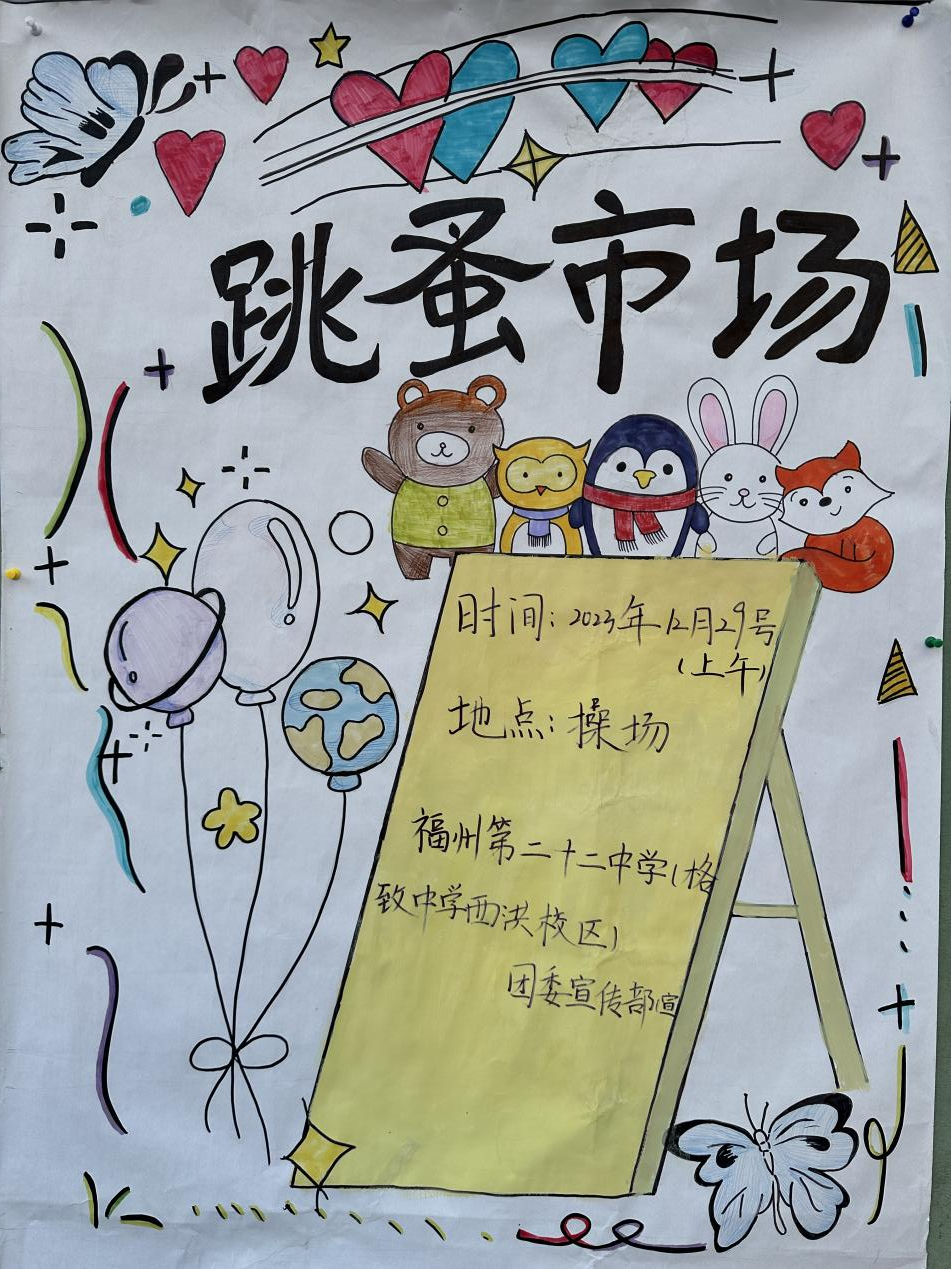 跳蚤市场
时间：2023年12月29号
（上午）
地点：操场
福州第二十二中学（格
致中学西洪校区）
团委宣传部宣